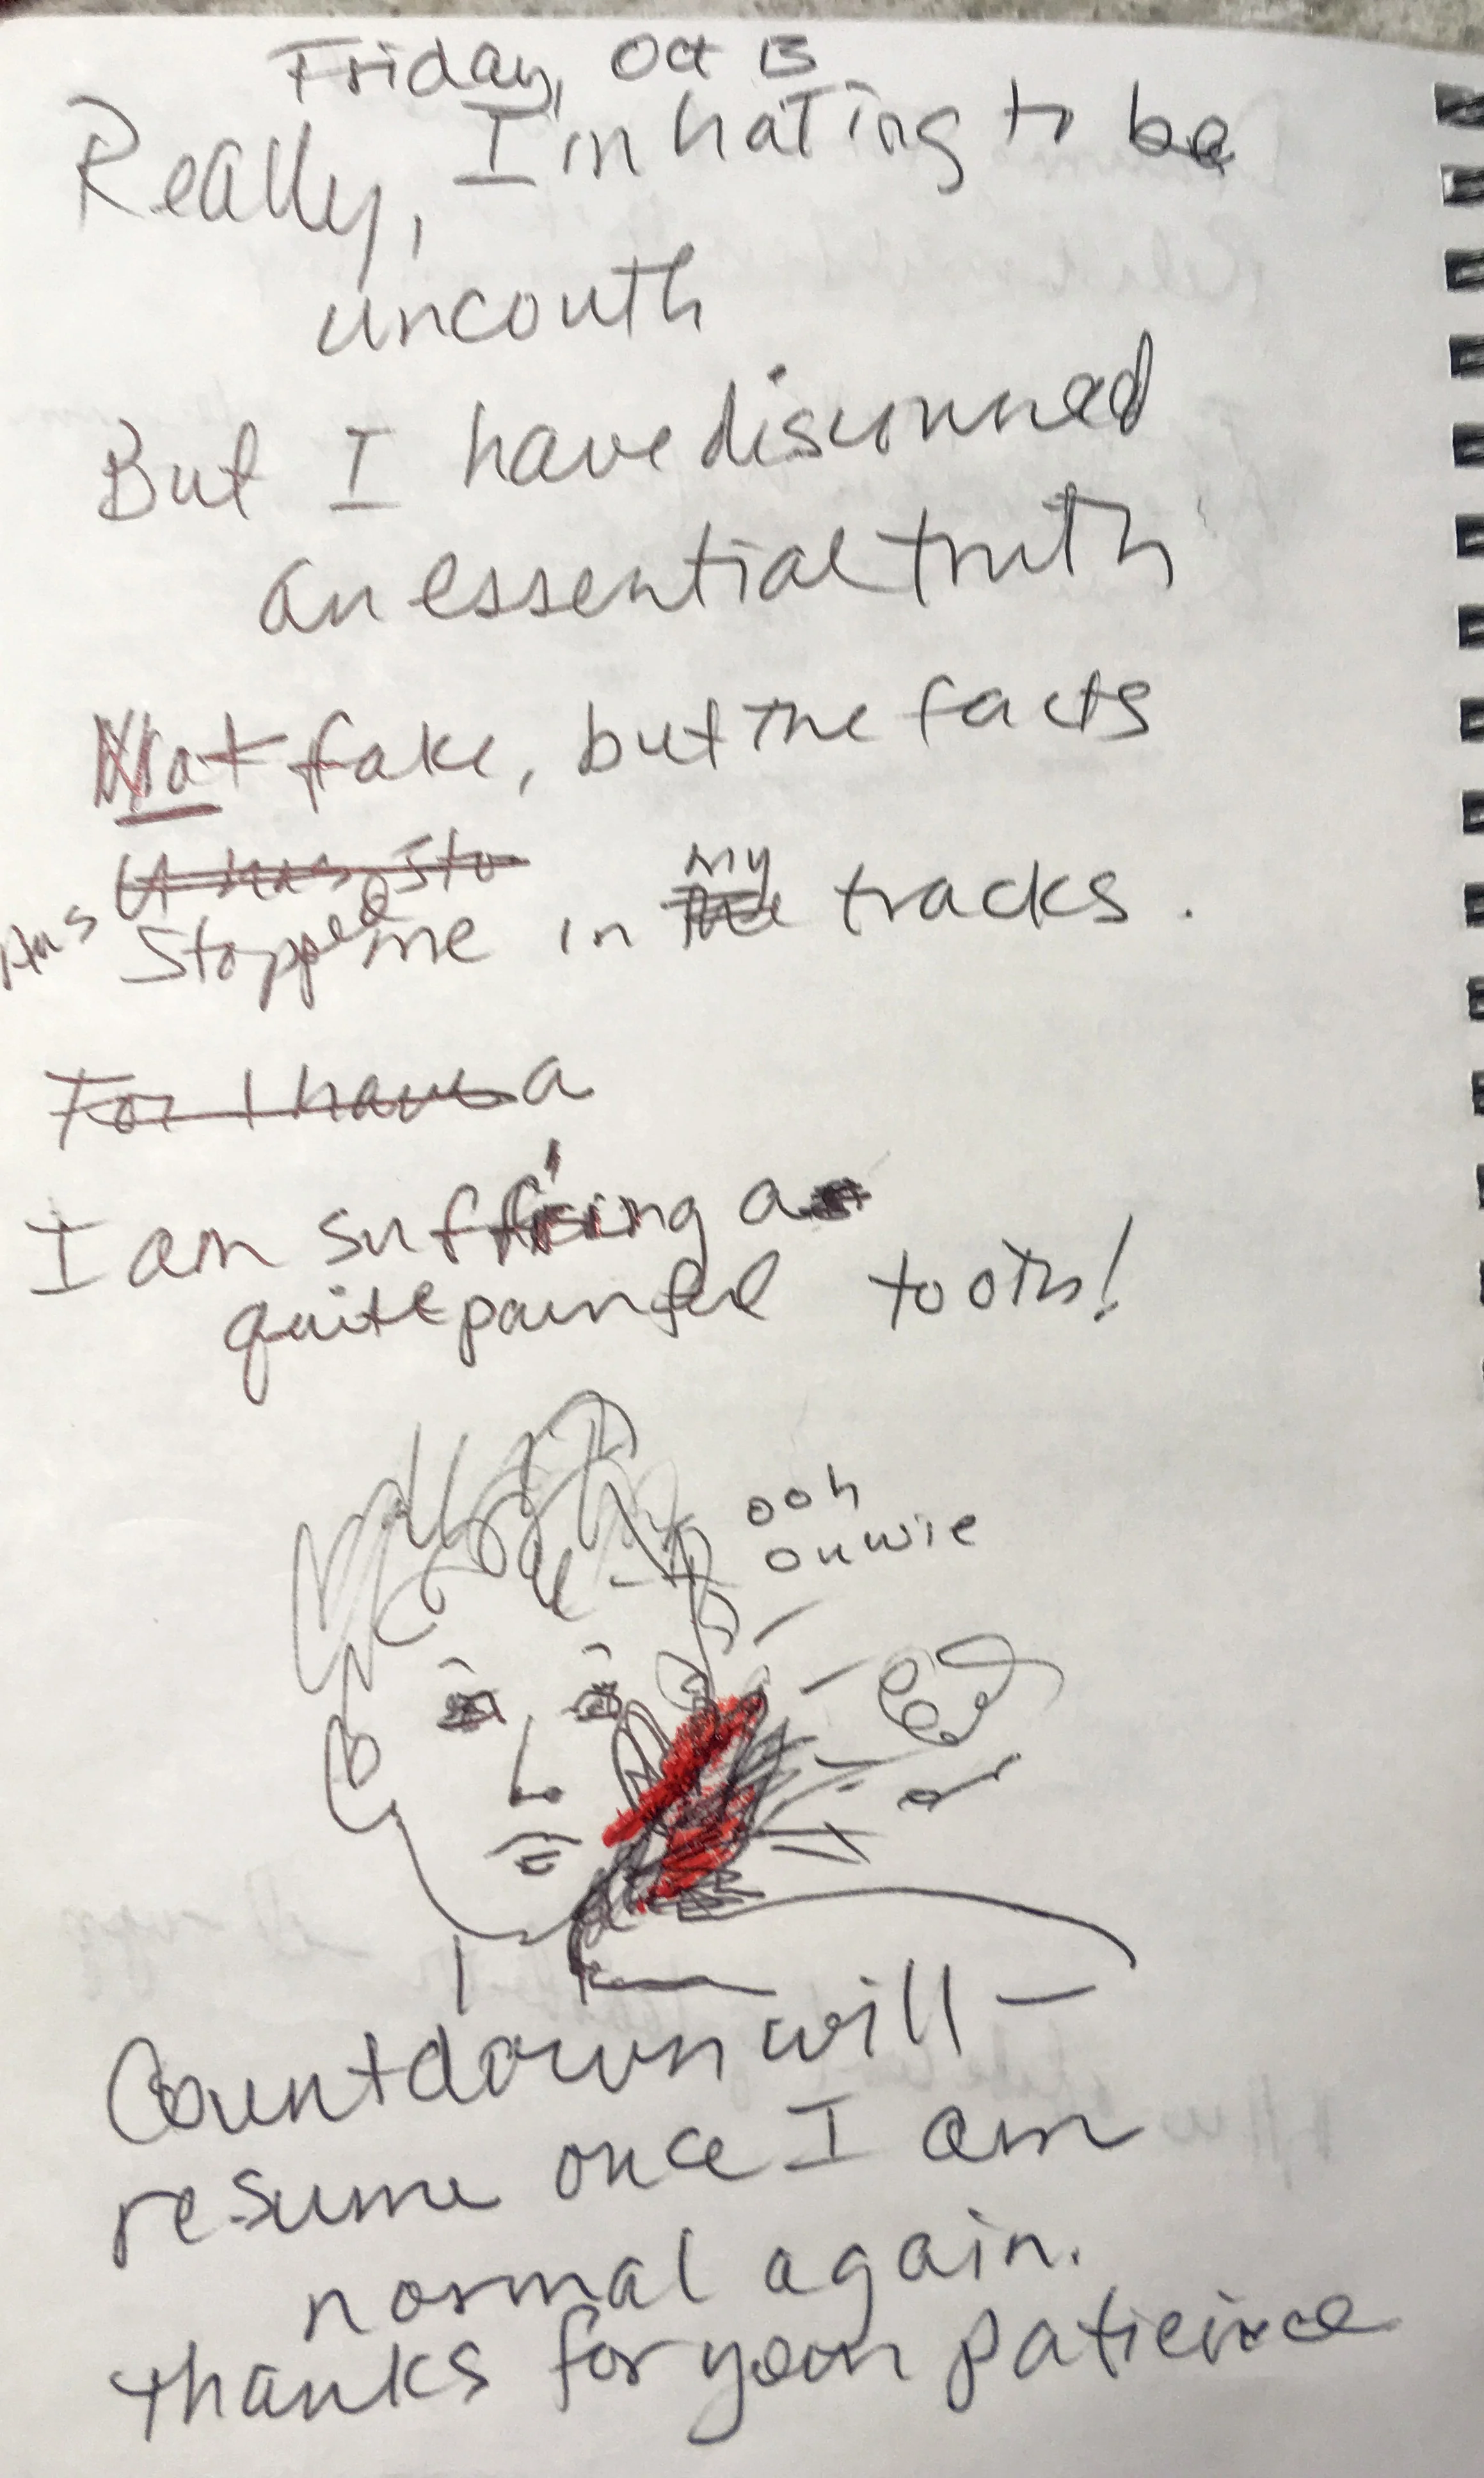 Friday, Oct 13
Really, I'm hating to be
uncouth
But I have discerned
an essential truth
Not fake, but the facts
It has sto
Has stopped me in my tracks.
For I have a
I am suff'ring a
quite painful tooth!
ooh
ouwie
Countdown will —
resume once I am
normal again.
thanks for your patieince